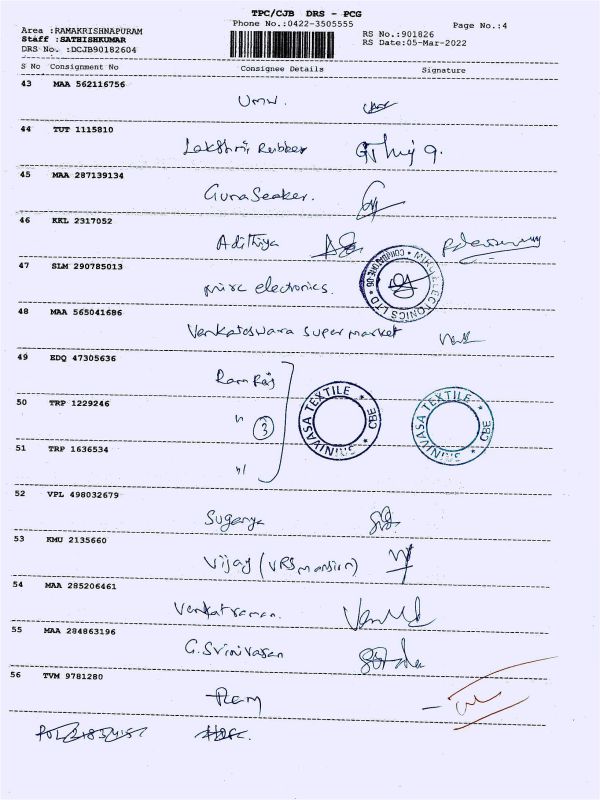 TPC/CJB DRS - PCG
Phone No.:0422-3505555
Page No.:4
Area :RAMAKRISHNAPURAM
Staff :SATHISHKUMAR
DRS No. :DCJB90182604
RS No.:901826
RS Date:05-Mar-2022
S No Consignment No Consignee Details Signature
43 MAA 562116756
Umw.
44 TUT 1115810
Lakshmi Rubber
45 MAA 287139134
Guna Seaker.
46 KKL 2317052
Adithiya
47 SLM 290785013
mirc electronics.
MIRC ELECTRONICS LTD * COIMBATORE-06 *
48 MAA 565041686
Venkateswara super market
49 EDQ 47305636
Ram Raj
50 TRP 1229246
" 3
SRINIVASA TEXTILE * CBE *
SRINIVASA TEXTILE * CBE *
51 TRP 1636534
"
52 VPL 498032679
Suganya
53 KMU 2135660
Vijay (VRS mansion)
54 MAA 285206461
Venkatraman.
55 MAA 284863196
G. Srinivasan
56 TVM 9781280
Ram